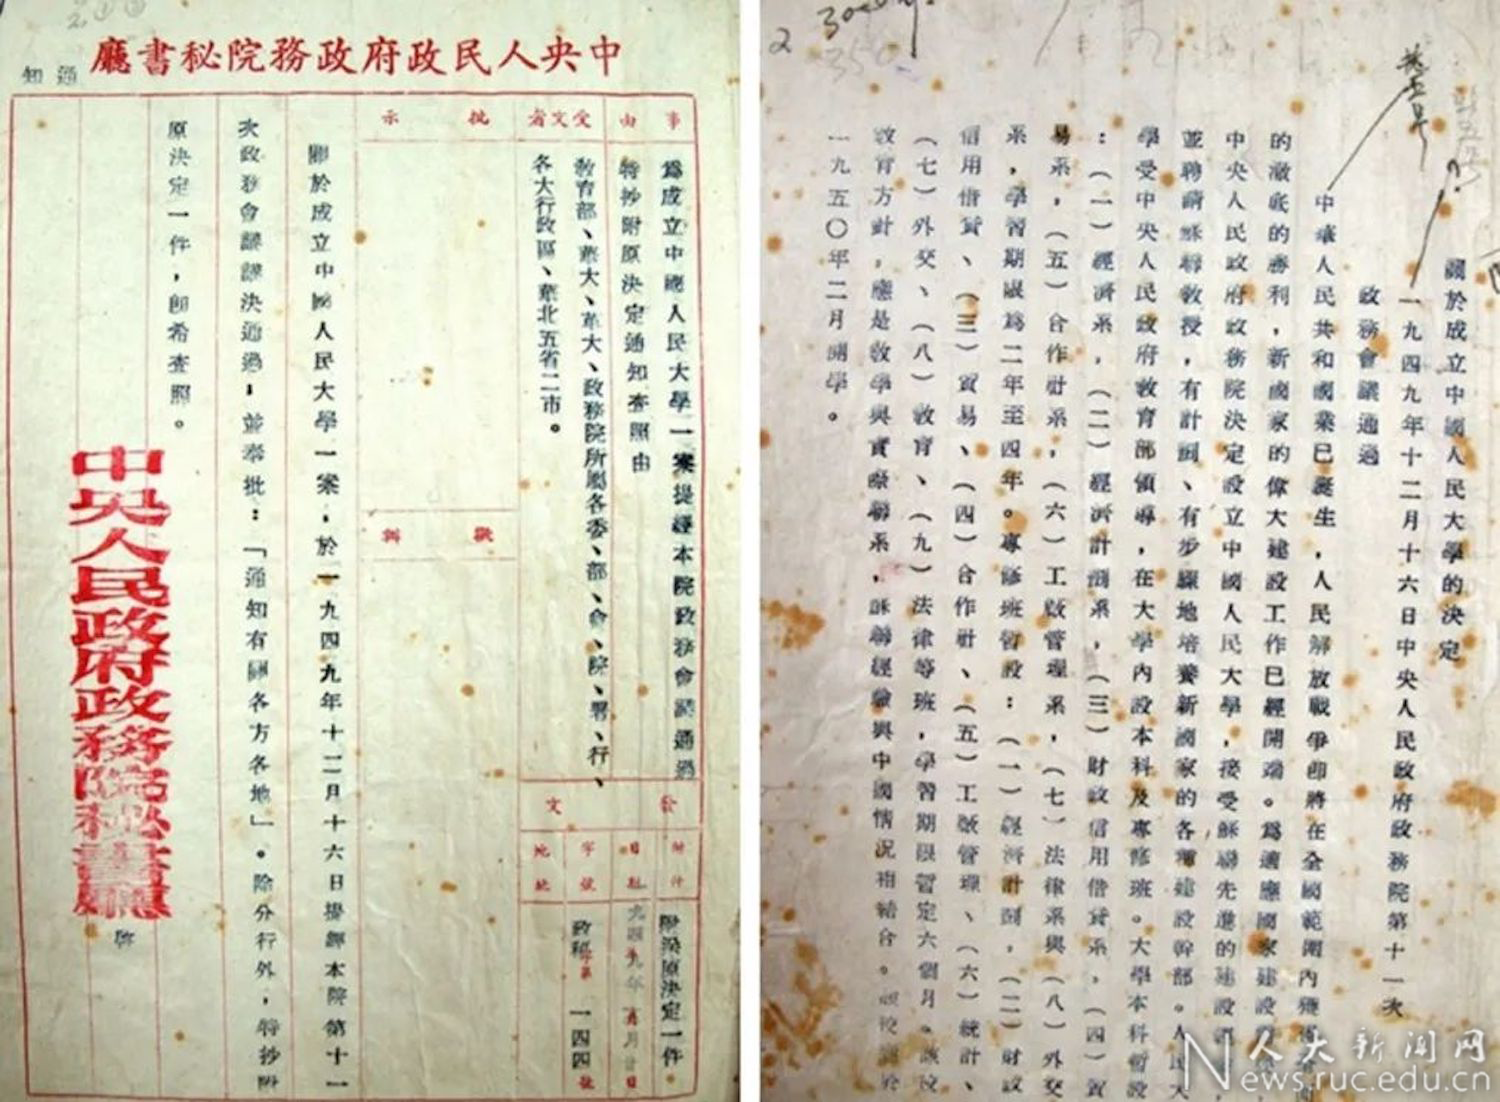 中央人民政府政務院秘書廳
通知
事由
為成立中國人民大學一案提經本院政務會議通過
特抄附原決定通知查照由
受文者
教育部、華大、革大、政務院所屬各委、部、會、院、署、行、
各大行政區、華北五省二市。
批示
擬辦
發文
附件
附發原決定一件
日期
一九四九年 月 日
字號
政秘字第一四四號
地址
關於成立中國人民大學一案，於一九四九年十二月十六日提經本院第十一
次政務會議議決通過；並奉批：「通知有關各方各地」。除分行外，特抄附
原決定一件，即希查照。
中央人民政府政務院秘書廳
啓
2
關於成立中國人民大學的決定
一九四九年十二月十六日中央人民政府政務院第十一次
政務會議通過
中華人民共和國業已誕生，人民解放戰爭即將在全國範圍內獲得
的澈底的勝利，新國家的偉大建設工作已經開端。為適應國家建設
中央人民政府政務院決定設立中國人民大學，接受蘇聯先進的建設
並聘請蘇聯教授，有計劃、有步驟地培養新國家的各種建設幹部。人民大
學受中央人民政府教育部領導，在大學內設本科及專修班。大學本科暫設
：（一）經濟系，（二）經濟計劃系，（三）財政信用借貸系，（四）貿
易系，（五）合作社系，（六）工廠管理系，（七）法律系與（八）外交
系，學習期限為二年至四年。專修班暫設：（一）經濟計劃，（二）財政
信用借貸、（三）貿易、（四）合作社、（五）工廠管理、（六）統計、
（七）外交、（八）教育、（九）法律等班，學習期限暫定六個月。該校
教育方針，應是教學與實際聯系，蘇聯經驗與中國情況相結合。該校
一九五〇年二月開學。
人大新闻网
News.ruc.edu.cn